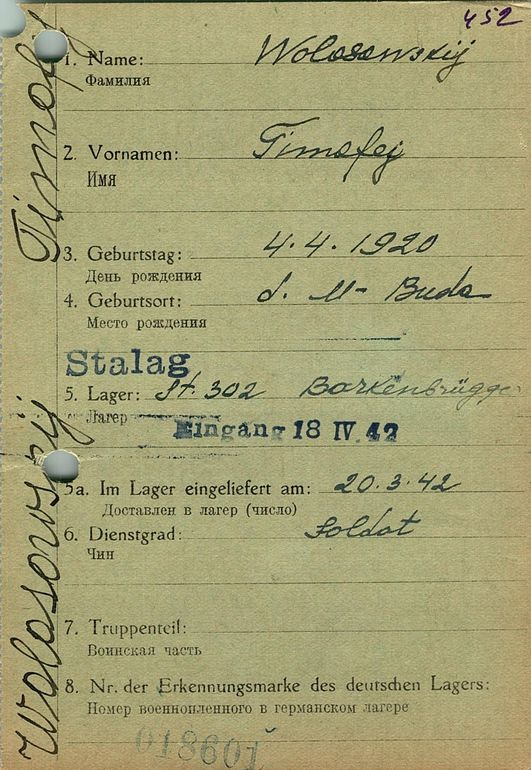 452
1. Name: Wolosowskij
Фамилия
2. Vornamen: Timofej
Имя
3. Geburtstag: 4.4.1920
День рождения
4. Geburtsort: d. M- Buda
Место рождения
Stalag
5. Lager: St. 302 Barkenbrügge
Лагерь
Eingang 18 IV. 42
5a. Im Lager eingeliefert am: 20.3.42
Доставлен в лагер (число)
6. Dienstgrad: Soldat
Чин
7. Truppenteil:
Воинская часть
8. Nr. der Erkennungsmarke des deutschen Lagers:
Номер военнопленного в германском лагере
018601
Wolosowskij Timofej